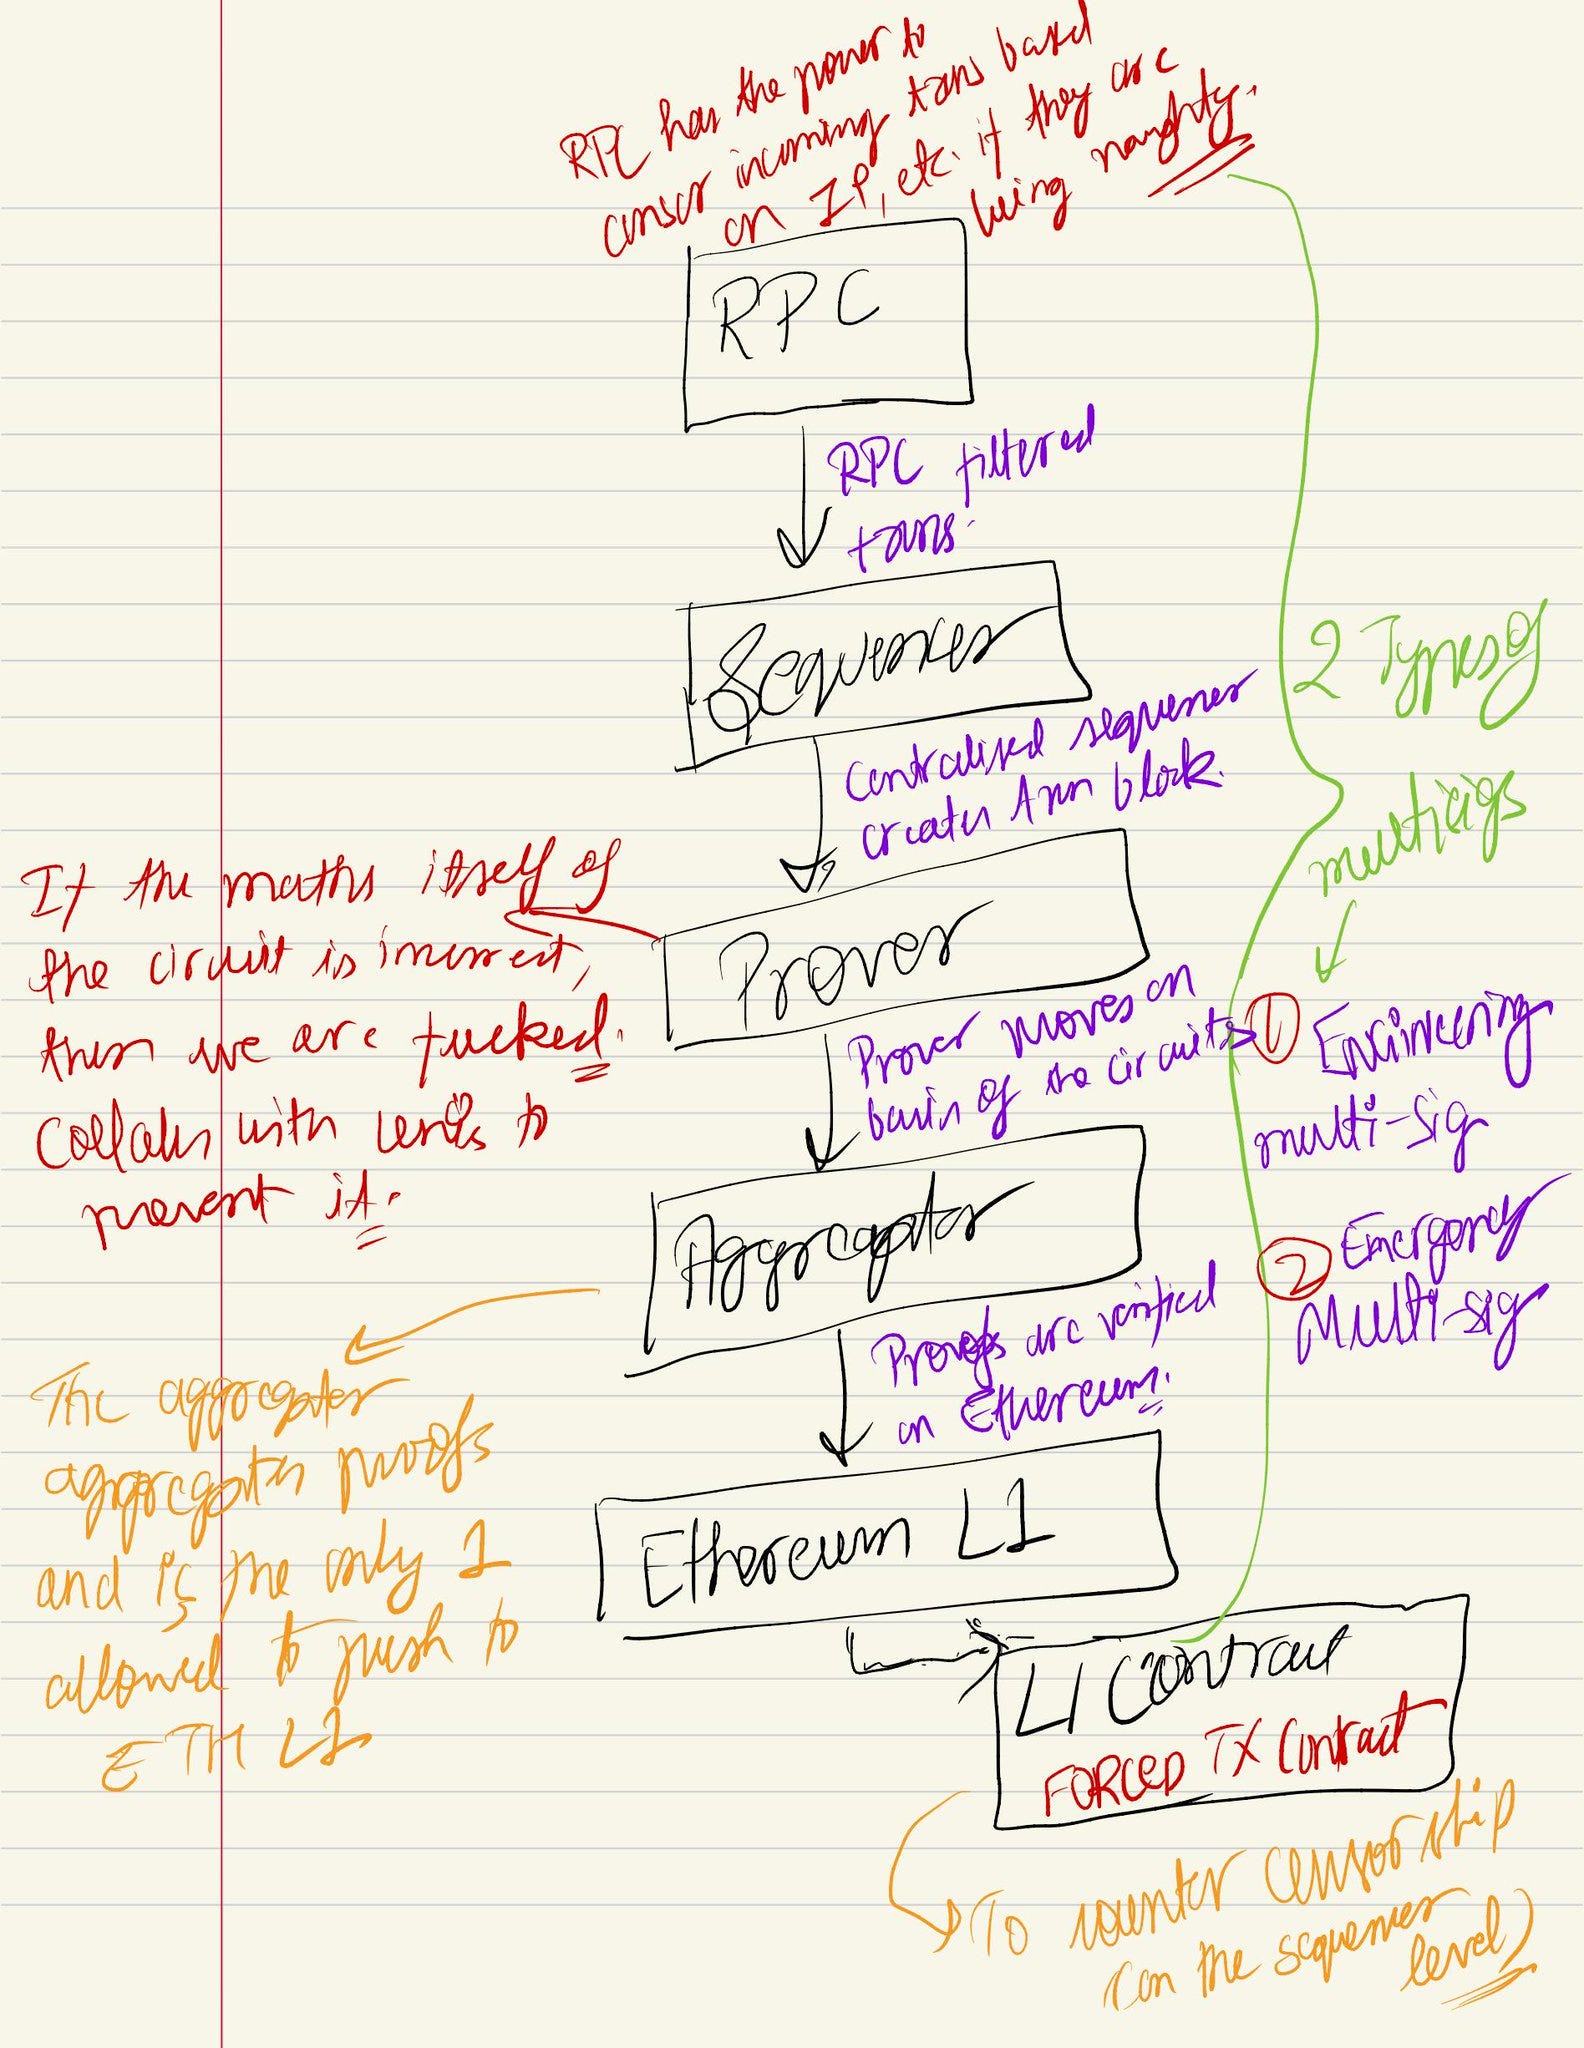 RPC has the power to
censor incoming trans based
on IP, etc. if they are
being naughty.
RPC
RPC filtered
trans.
Sequencer
Centralised sequencer
creates block.
2 Types of
multicigs
If the maths itself of
the circuit is incorrect,
then we are fucked.
Collabs with to
prevent it.
Prover
Prover moves on
basis of the circuits
1 Engineering
multi-sig
Aggregator
2 Emergency
Multi-sig
Proofs are verified
on Ethereum.
The aggregator
aggregates proofs
and is the only 1
allowed to push to
ETH L1
Ethereum L1
L1 Contract
FORCED TX Contract
To counter censorship
(on the sequencer
level)